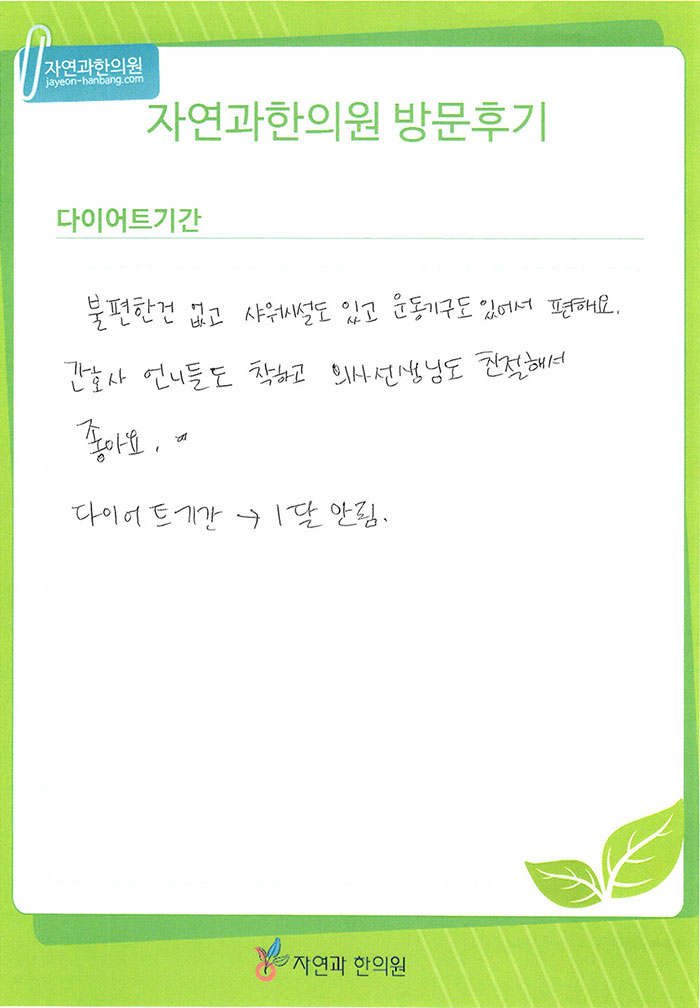 자연과한의원
jayeon-hanbang.com
자연과한의원 방문후기
다이어트기간
불편한건 없고 샤워시설도 있고 운동기구도 있어서 편해요.
간호사 언니들도 착하고 의사선생님도 친절해서
좋아요.
다이어트기간 → 1달 안됨.
자연과 한의원